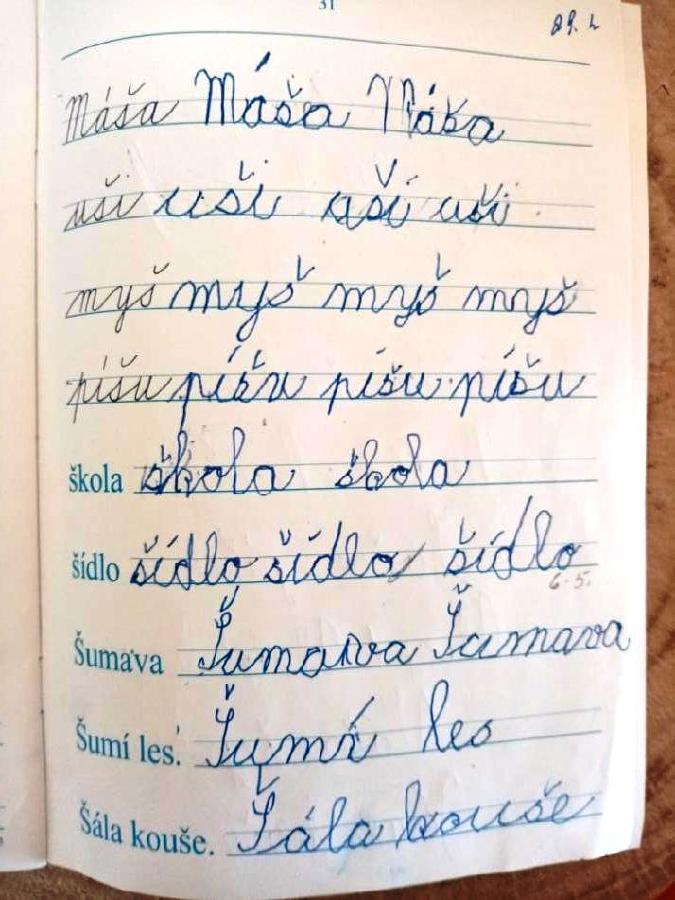 31
29. 4.
Máša Máša Máša
uši uši uši uši
myš myš myš myš
píšu píšu píšu píšu
škola škola škola
šídlo šídlo šídlo šídlo
6. 5.
Šumava Šumava Šumava
Šumí les. Šumí les
Šála kouše. Šála kouše